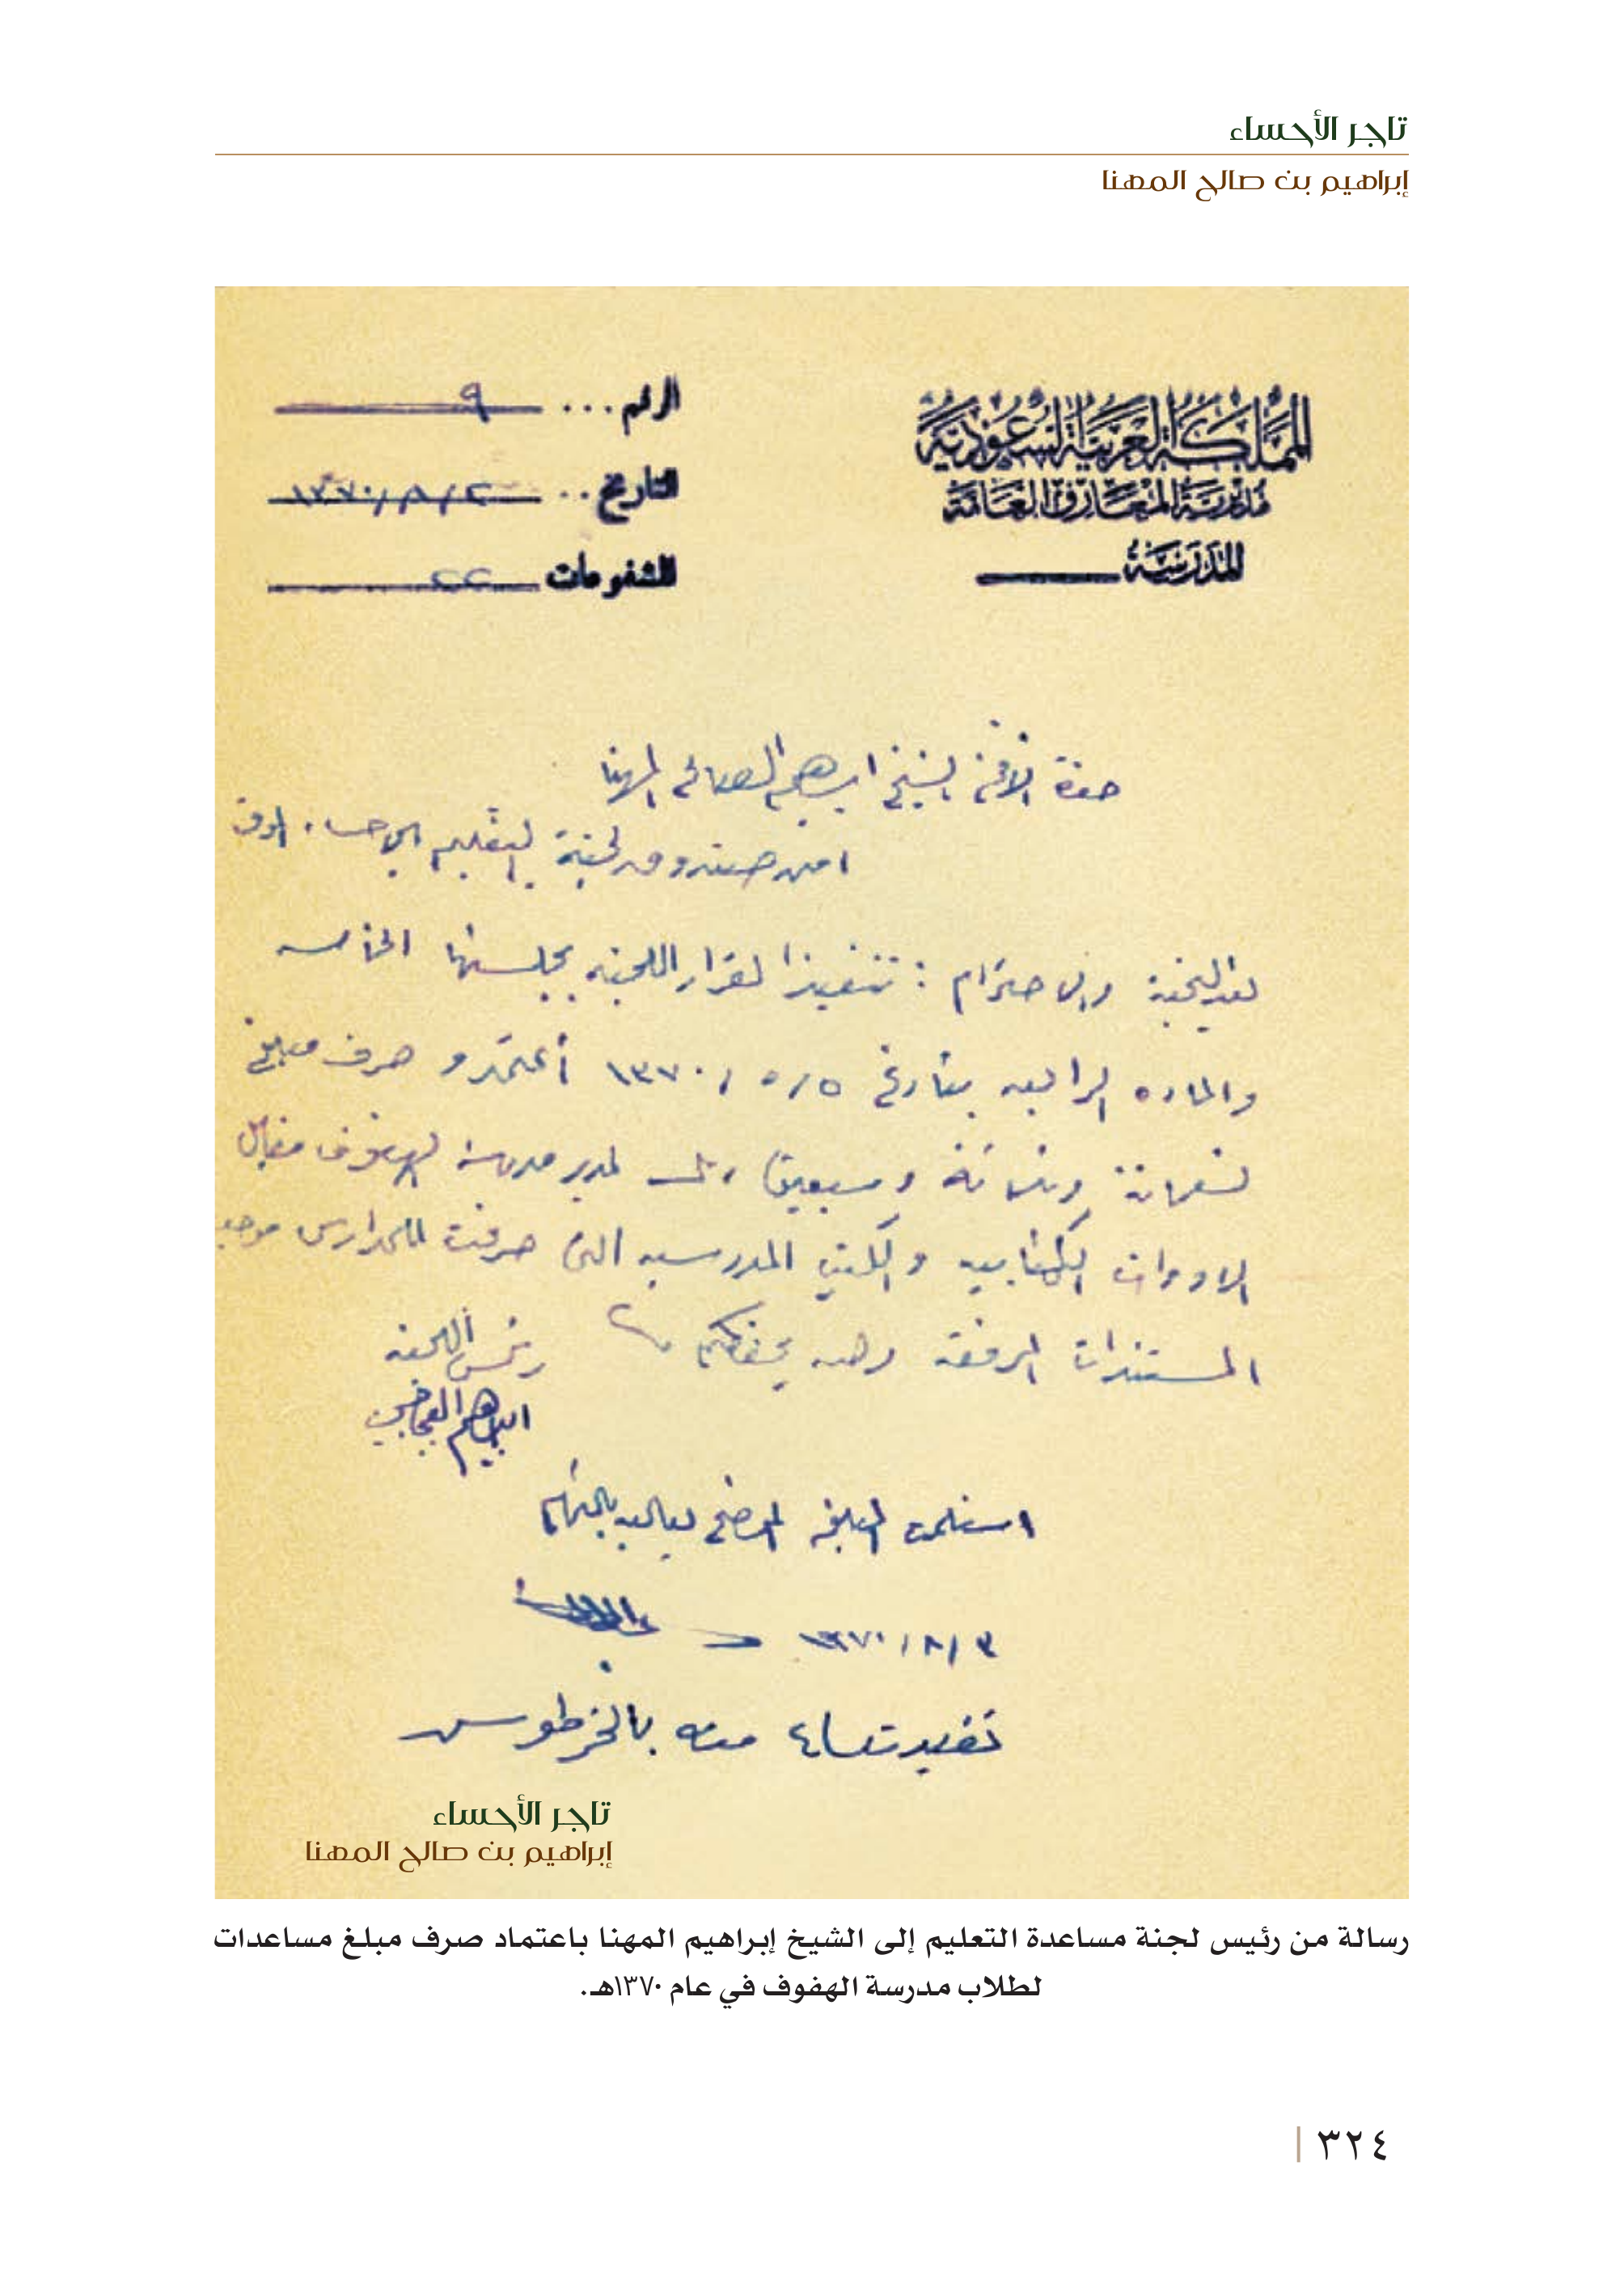 تاجر الأحساء
إبراهيم بن صالح المهنا
المملكة العربية السعودية
مديرية المعارف العامة
المدرسة
الرقم ... ٩
التاريخ .. ١٣٧٠/٨/٢
المشفوعات ٢٢
حضرة الشيخ ابراهيم الصالح المهنا
امين صندوق لجنة التعليم بالاحساء
بعد التحية والاحترام : تنفيذا لقرار اللجنه بجلستها الخامسه
والماده الرابعه بتاريخ ٥/٥/١٣٧٠ أعتمدو صرف مبلغ
تسعمائة وثمانية وسبعين ريال لمدير مدرسة الهفوف مقابل
الادوات الكتابيه والكتب المدرسيه التى صرفت للمدارس موجب
المستندات المرفقة والله يحفظكم
رئيس اللجنه
ابراهيم
استلمت المبلغ الموضح بعاليه بالتمام
١٣٧٠/٨/٣
منه
تاجر الأحساء
إبراهيم بن صالح المهنا
رسالة من رئيس لجنة مساعدة التعليم إلى الشيخ إبراهيم المهنا باعتماد صرف مبلغ مساعدات
لطلاب مدرسة الهفوف في عام ١٣٧٠هـ.
٣٢٤